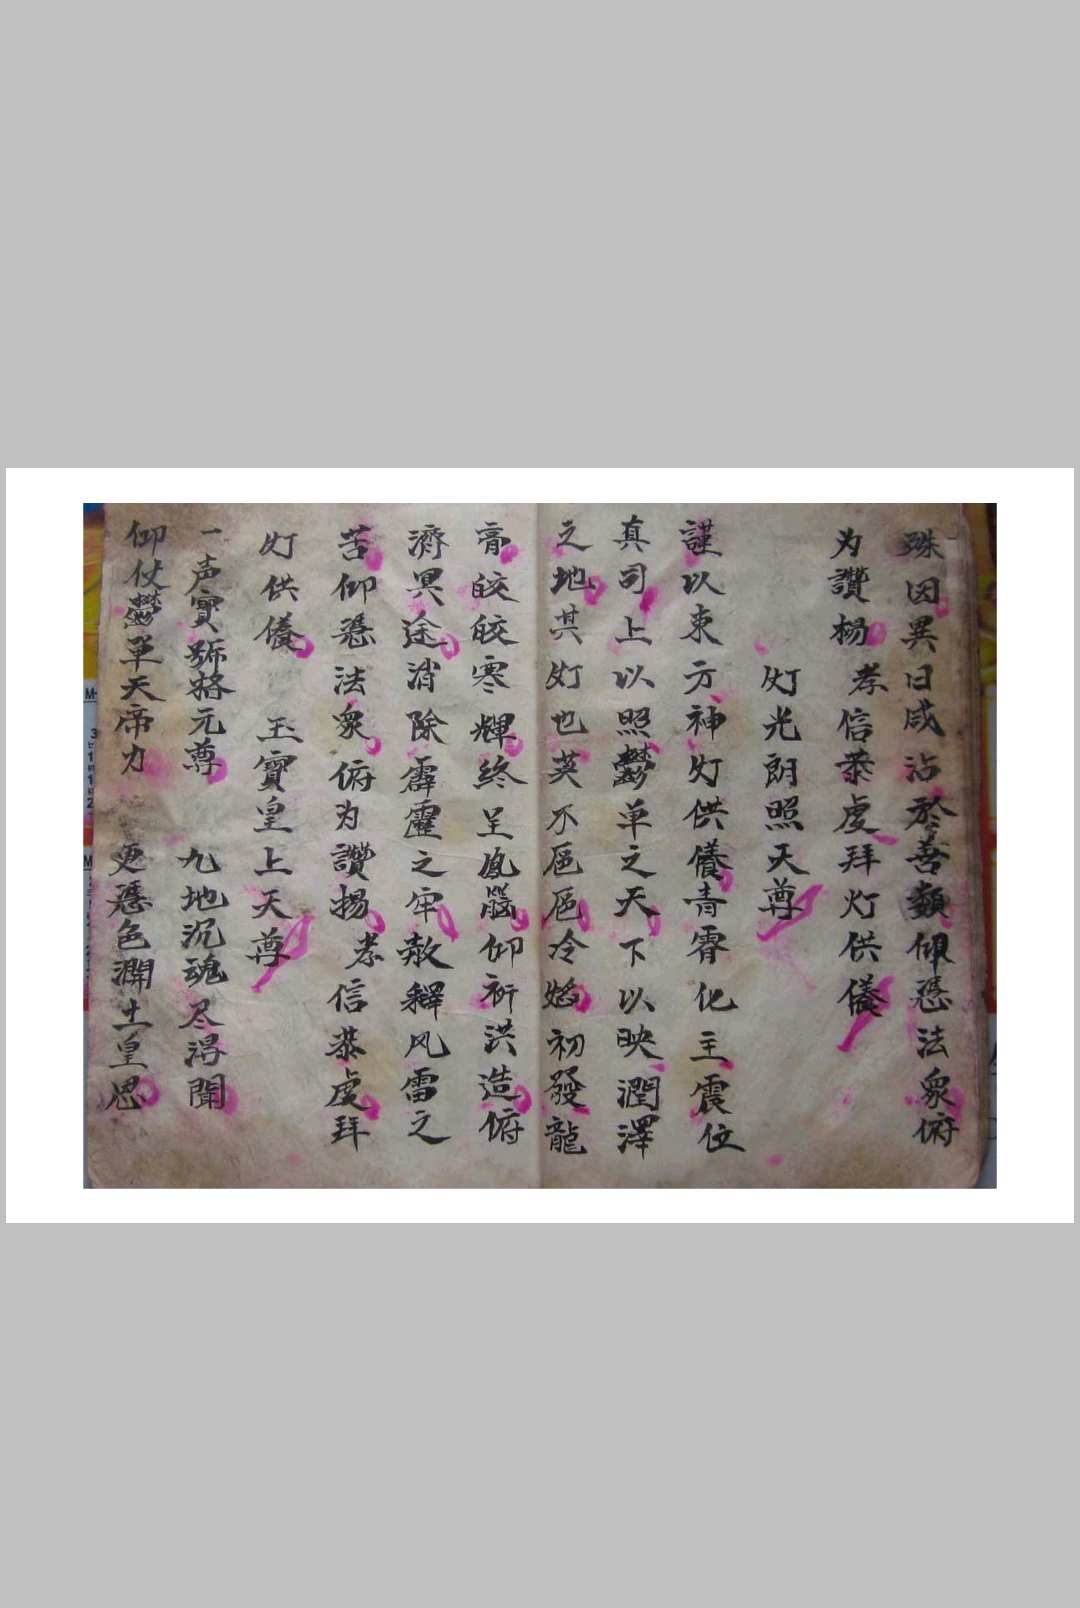 殊因異日咸沾於善類仰憑法眾俯
为讚楊 孝信恭虔拜灯供儀
灯光朗照天尊
謹以東方神灯供儀青霄化主震位
真司上以照鬱单之天下以映潤澤
之地其灯也英不扈扈冷焰初發龍
膏皎皎寒輝終呈鳳腦仰祈洪造俯
濟冥途消除霹靂之牢赦釋风雷之
苦仰憑法眾俯为讚揚 孝信恭虔拜
灯供儀 玉寳皇上天尊
一声寳號格元尊 九地沉魂尽淂聞
仰仗鬱单天帝力 更憑色潤土皇恩